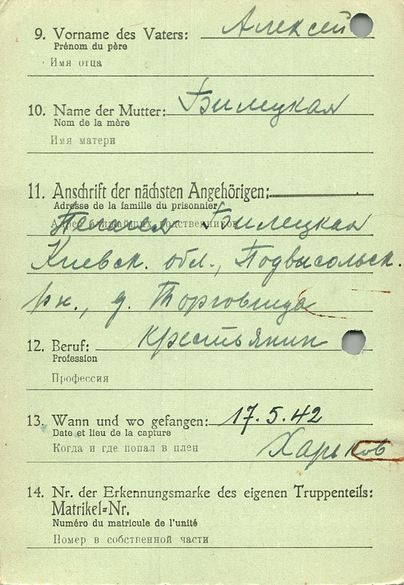 9. Vorname des Vaters: Алексей
Prénom du père
Имя отца
10. Name der Mutter: Билецкая
Nom de la mère
Имя матери
11. Anschrift der nächsten Angehörigen:
Adresse de la famille du prisonnier
Адрес ближайших родственников
Билецкая
Киевск. обл., Подвысольск.
рн., д. Торговица
12. Beruf: крестьянин
Profession
Профессия
13. Wann und wo gefangen: 17.5.42
Date et lieu de la capture
Когда и где попал в плен Харьков
14. Nr. der Erkennungsmarke des eigenen Truppenteils:
Matrikel=Nr.
Numéro du matricule de l'unité
Номер в собственной части